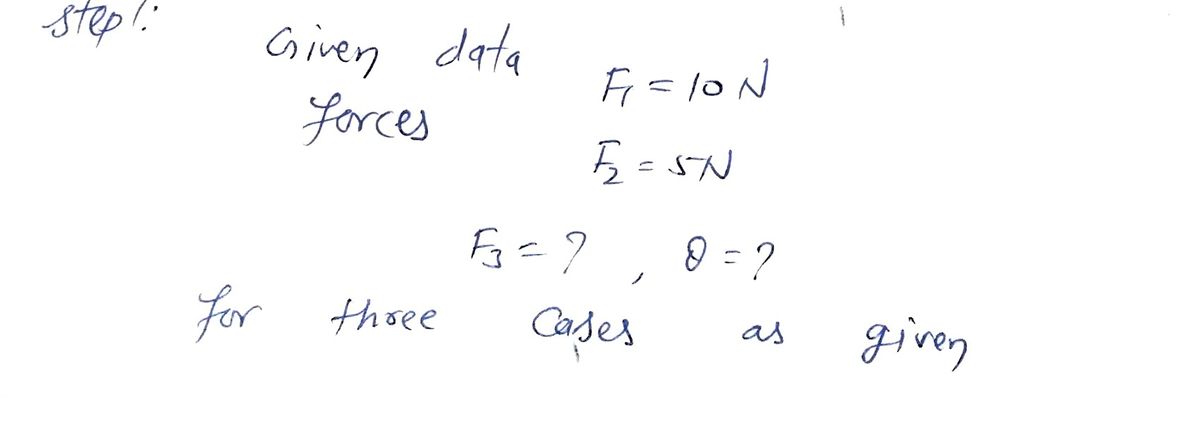 step 1:
Given data
F₁ = 10 N
forces
F₂ = 5N
F₃ = ? , θ = ?
for three cases as given